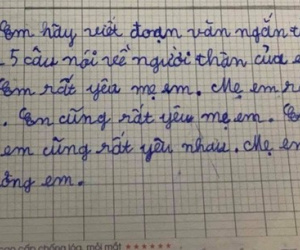 Em hãy viết đoạn văn ngắn t
. 5 câu nói về người thân của e
Em rất yêu mẹ em. Mẹ em r
. Em cũng rất yêu mẹ em. Em
em cũng rất yêu nhau. Mẹ em
ơng em.